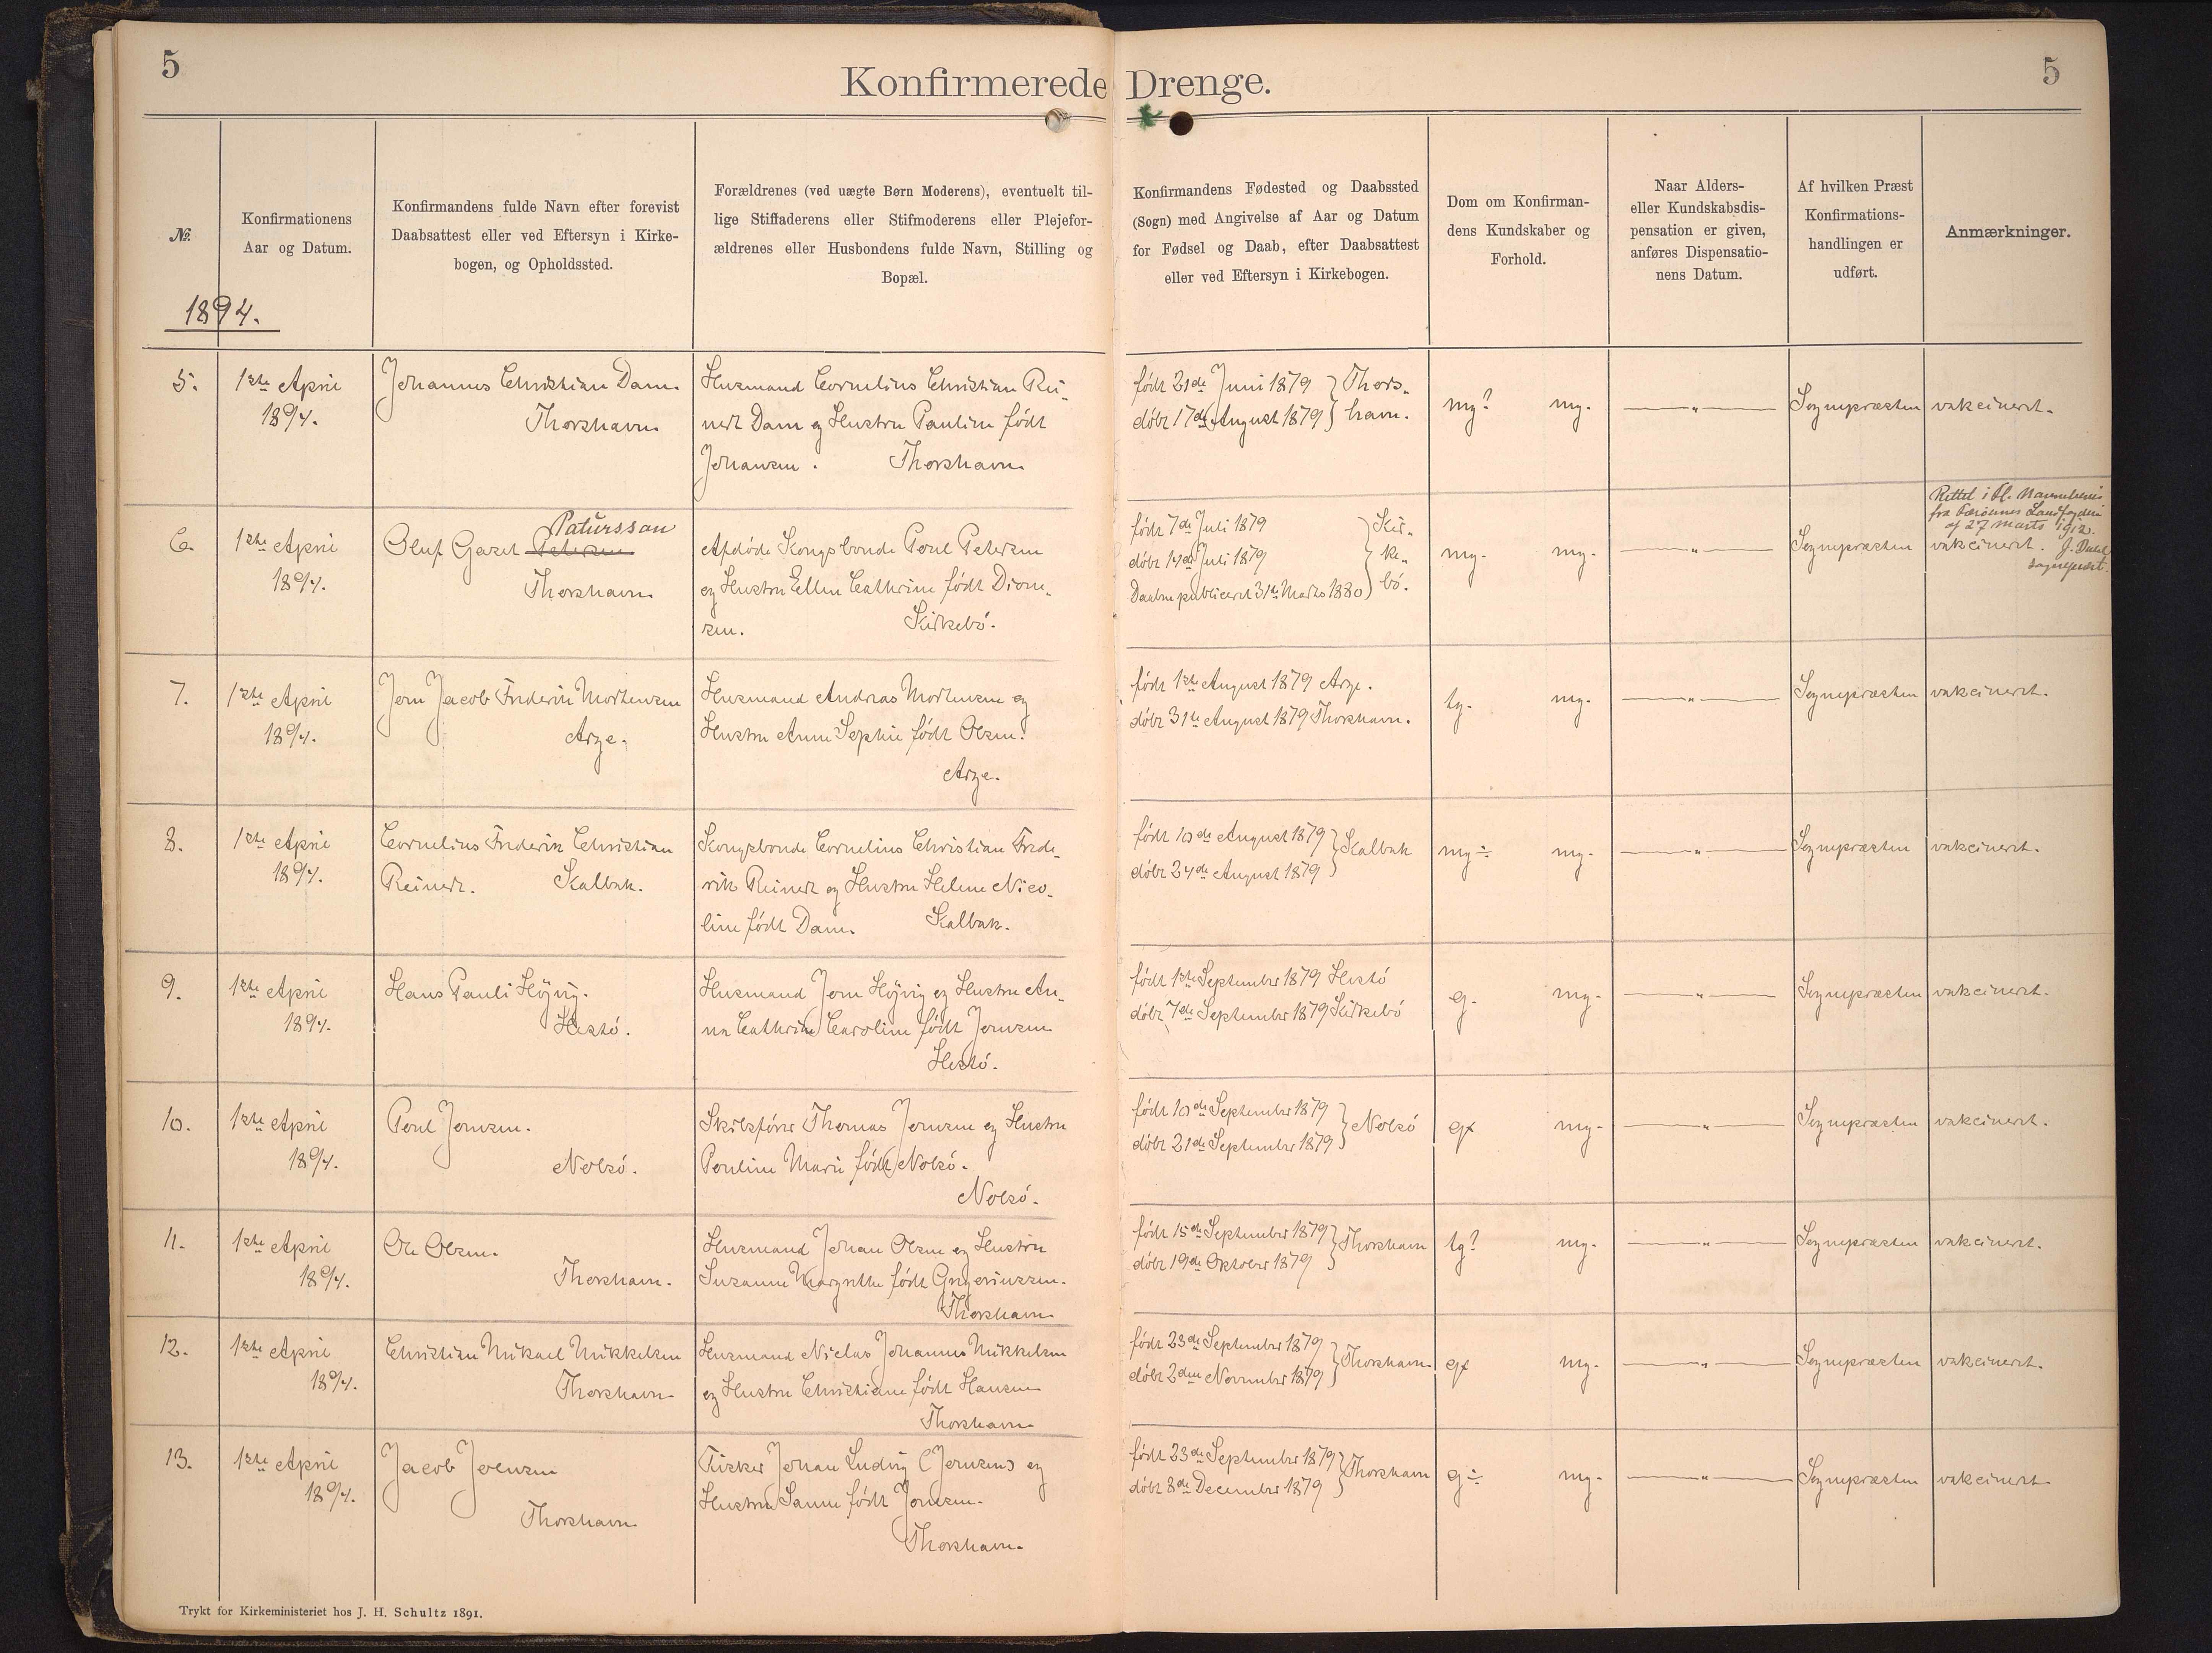 5
Konfirmerede Drenge.
5
№.
Konfirmationens
Aar og Datum.
Konfirmandens fulde Navn efter forevist
Daabsattest eller ved Eftersyn i Kirke-
bogen, og Opholdssted.
Forældrenes (ved uægte Børn Moderens), eventuelt til-
lige Stiffaderens eller Stifmoderens eller Plejefor-
ældrenes eller Husbondens fulde Navn, Stilling og
Bopæl.
Konfirmandens Fødested og Daabssted
(Sogn) med Angivelse af Aar og Datum
for Fødsel og Daab, efter Daabsattest
eller ved Eftersyn i Kirkebogen.
Dom om Konfirman-
dens Kundskaber og
Forhold.
Naar Alders-
eller Kundskabsdis-
pensation er given,
anføres Dispensatio-
nens Datum.
Af hvilken Præst
Konfirmations-
handlingen er
udført.
Anmærkninger.
1894.
5.
1ste April
1894.
Johannes Christian Dam.
Thorshavn
Husmand Cornelius Christian Rei-
nert Dam og Hustru Pauline født
Johansen. Thorshavn
født 21de Juni 1879
døbt 17de August 1879
Thors-
havn.
mg? mg.
— " —
Sognepræsten
vakcineret.
6.
1ste April
1894.
Patursson
Oluf Gazet Petersen
Thorshavn
Afdøde Kongsbonde Poul Petersen
og Hustru Ellen Cathrine født Dion-
sen. Kirkebø.
født 7de Juli 1879
døbt 14de Juli 1879
Daaben publiceret 31te Marts 1880
Kir-
ke-
bø.
mg. mg.
— " —
Sognepræsten
Rettet i Fl. Navnebevis
fra Færøernes Landfogderi
af 27 Marts 1912.
vakcineret. J. Dahl
sognepræst.
7.
1ste April
1894.
Joen Jacob Frederik Mortensen
Arge.
Husmand Andreas Mortensen og
Hustru Anne Sophie født Olsen.
Arge.
født 1ste August 1879 Arge.
døbt 31te August 1879 Thorshavn.
tg. mg.
— " —
Sognepræsten
vakcineret.
8.
1ste April
1894.
Cornelius Frederik Christian
Reinert. Kalbak.
Kongsbonde Cornelius Christian Frede-
rik Reinert og Hustru Helene Nico-
line født Dam. Kalbak.
født 10de August 1879
døbt 24de August 1879
Kalbak
mg÷ mg.
— " —
Sognepræsten
vakcineret.
9.
1ste April
1894.
Hans Pauli Høјvig.
Hestø.
Husmand Joen Højvig og Hustru An-
na Cathrine Caroline født Joensen
Hestø.
født 1ste September 1879 Hestø
døbt 7de September 1879 Kirkebø
g. mg.
— " —
Sognepræsten
vakcineret.
10.
1ste April
1894.
Poul Joensen.
Nolsø.
Skibsfører Thomas Joensen og Hustru
Pouline Marie født Nolsø.
Nolsø.
født 10de September 1879
døbt 21de September 1879
Nolsø
g× mg.
— " —
Sognepræsten
vakcineret.
11.
1ste April
1894.
Ole Olsen.
Thorshavn.
Husmand Johan Olsen og Hustru
Susanne Margrethe født Gregoriussen.
Thorshavn
født 15de September 1879
døbt 19de Oktober 1879
Thorshavn
tg? mg.
— " —
Sognepræsten
vakcineret.
12.
1ste April
1894.
Christian Mikael Mikkelsen
Thorshavn
Husmand Niclas Johannes Mikkelsen
og Hustru Christiane født Hansen
Thorshavn
født 23de September 1879
døbt 2den November 1879
Thorshavn
g× mg.
— " —
Sognepræsten
vakcineret.
13.
1ste April
1894.
Jacob Joensen
Thorshavn
Fisker Johan Ludvig (Joensen) og
Hustru Sanne født Joensen.
Thorshavn.
født 23de September 1879
døbt 8de December 1879
Thorshavn
g÷ mg.
— " —
Sognepræsten
vakcineret
Trykt for Kirkeministeriet hos J. H. Schultz 1891.